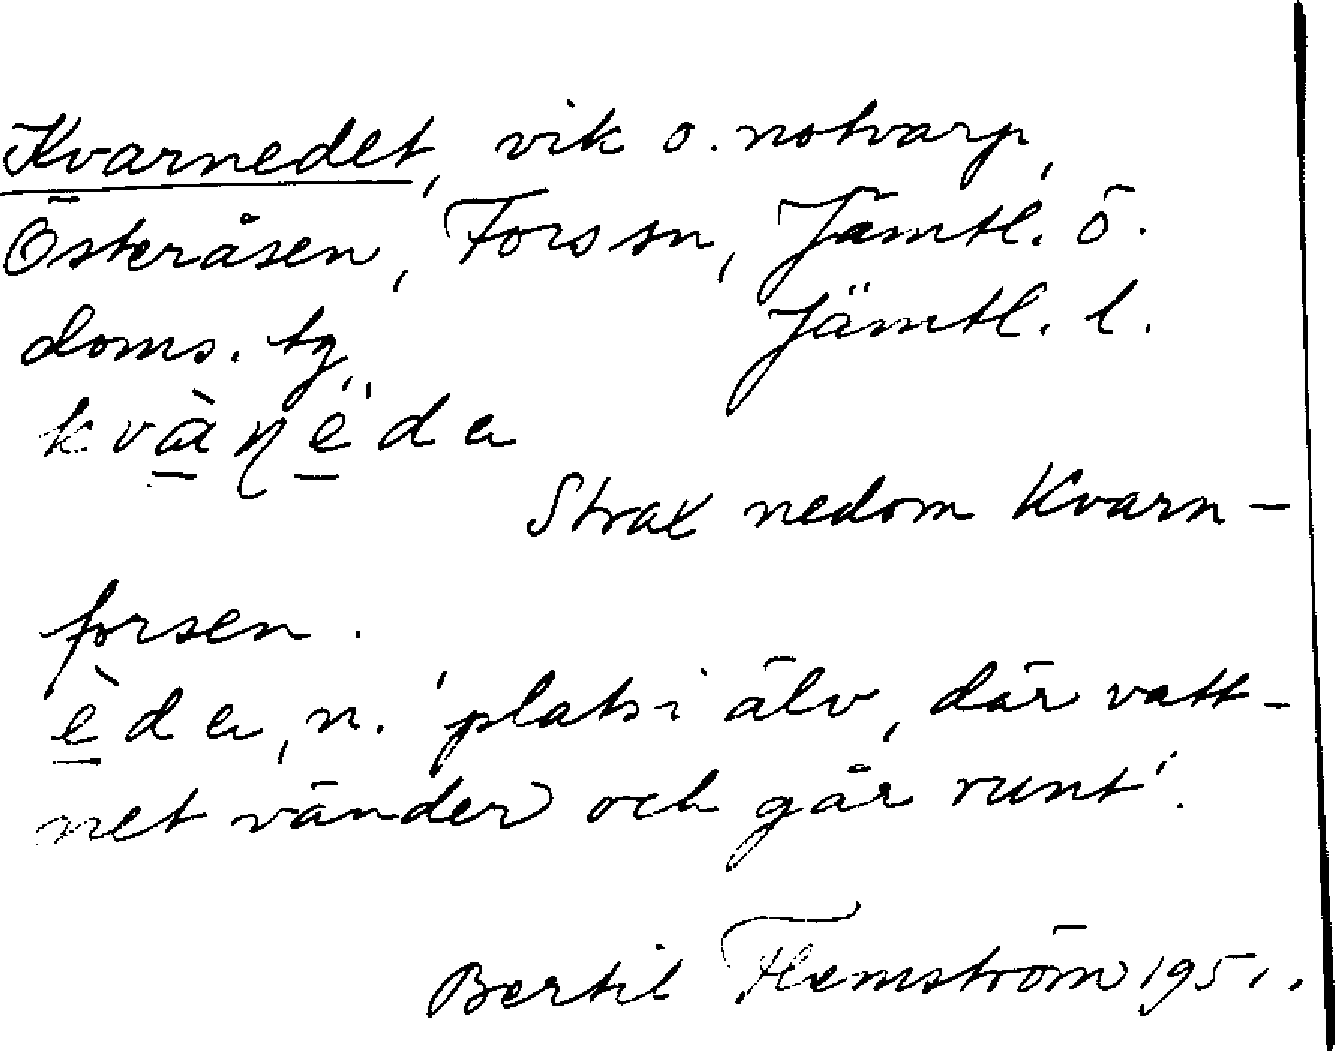 Kvarnedet, vik o. notvarp,
Österåsen, Fors sn, Jämtl. ö.
doms. tg, Jämtl. l.
kvàṇèda
Strax nedom Kvarn-
forsen.
èda, n. 'plats i älv, där vatt-
net vänder och går runt'.
Bertil Flemström 1951.